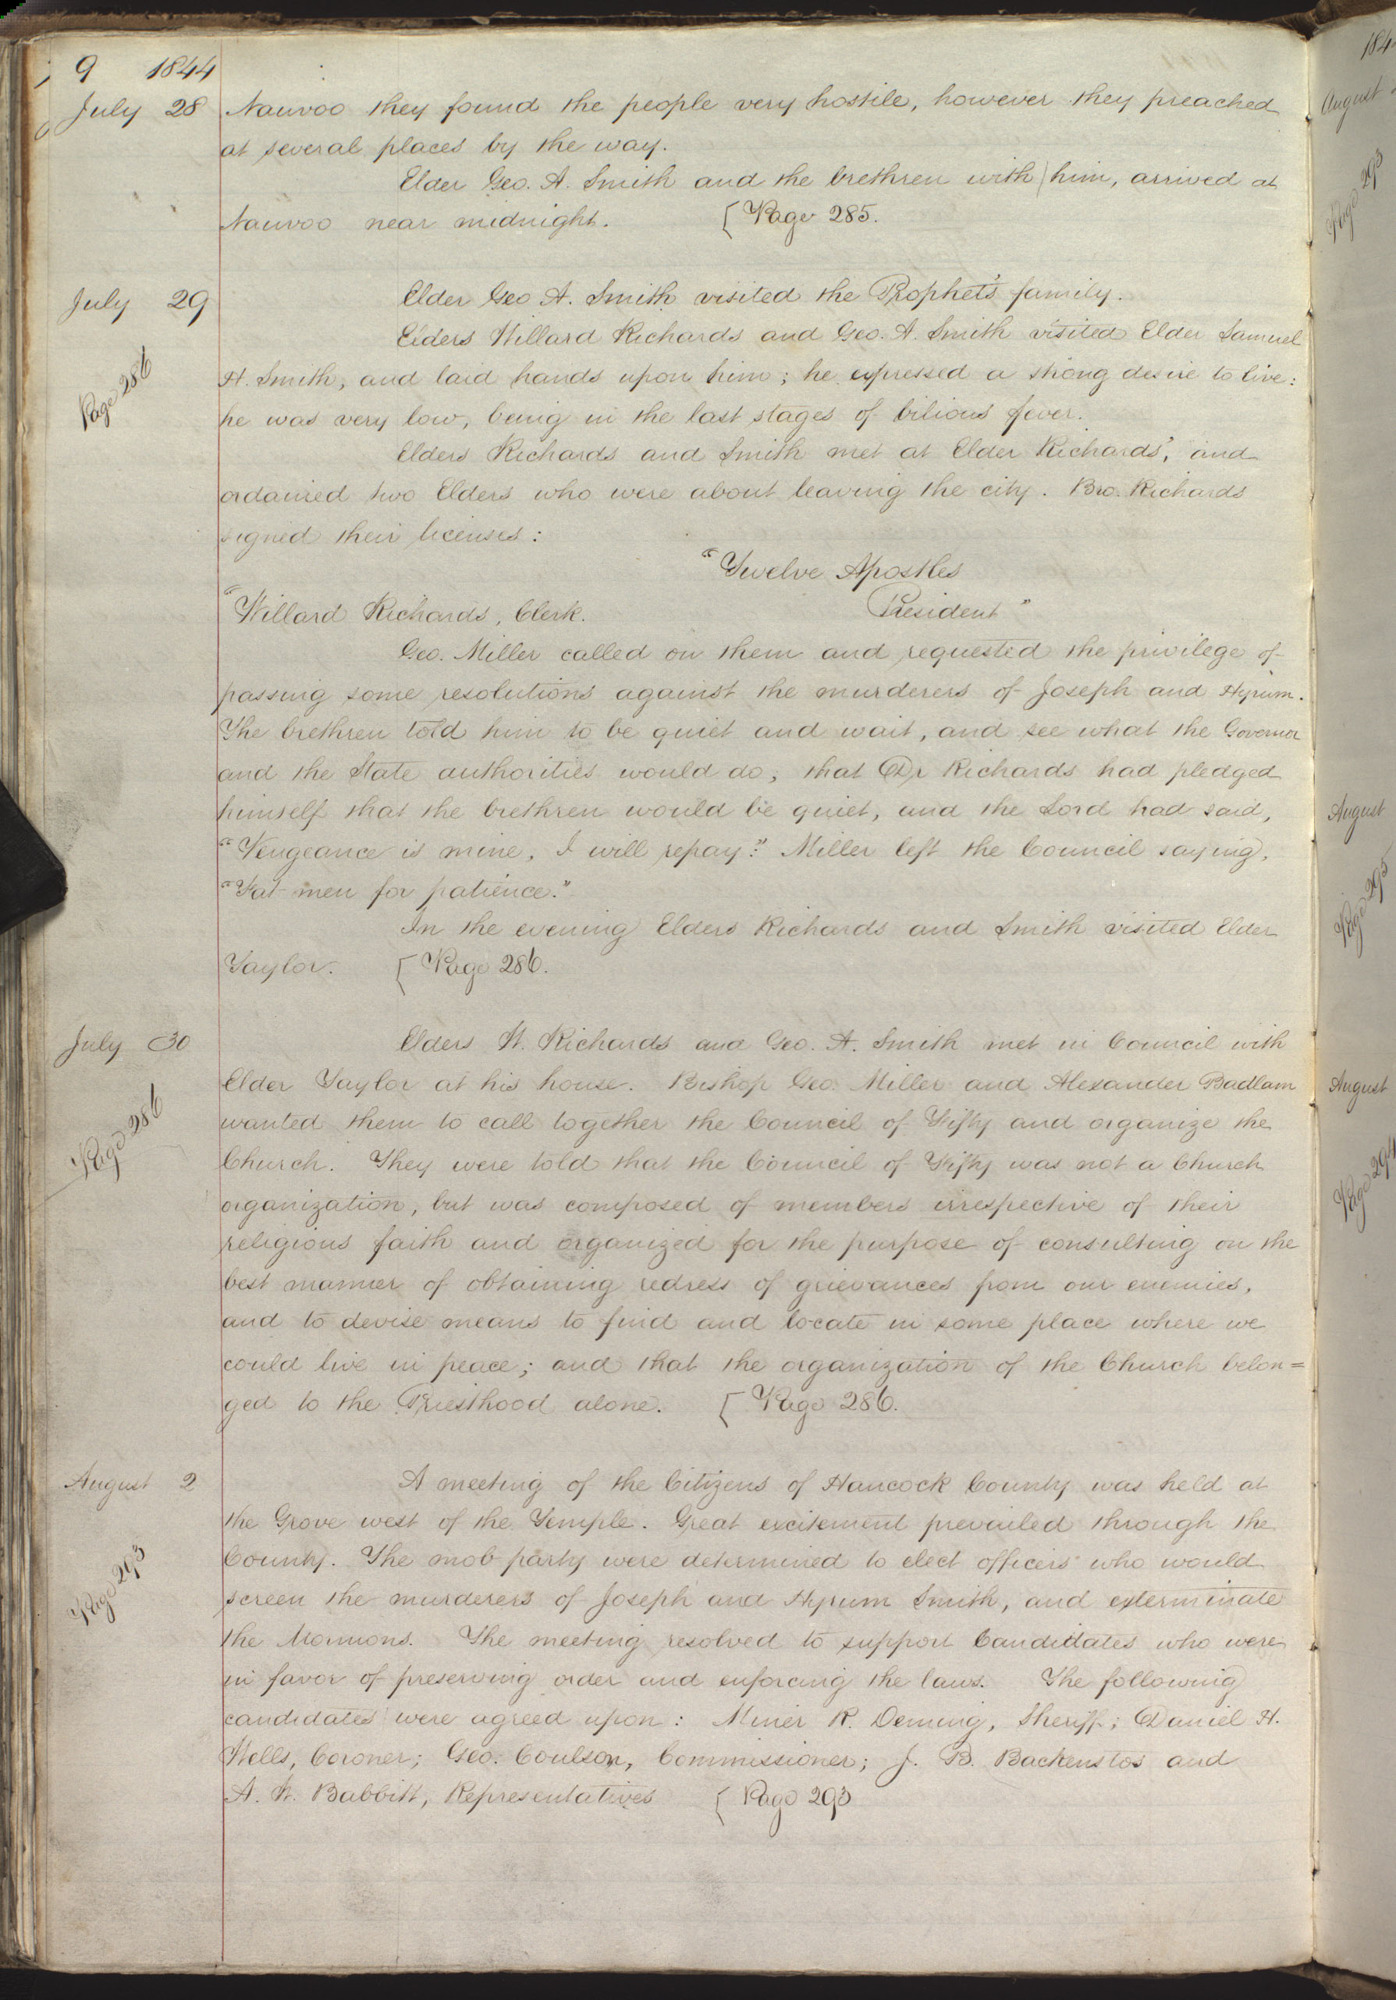 9 1844
July 28 Nauvoo they found the people very hostile, however they preached
at several places by the way.
Elder Geo. A. Smith and the brethren with him, arrived at
Nauvoo near midnight. [Page 285.
July 29 Elder Geo A. Smith visited the Prophet's family.
Elders Willard Richards and Geo. A. Smith visited Elder Samuel
Page 286
H. Smith, and laid hands upon him; he expressed a strong desire to live:
he was very low, being in the last stages of bilious fever.
Elders Richards and Smith met at Elder Richards', and
ordained two Elders who were about leaving the city. Bro. Richards
signed their licenses:
"Twelve Apostles
"Willard Richards, Clerk. President"
Geo. Miller called on them and requested the privilege of
passing some resolutions against the murderers of Joseph and Hyrum.
The brethren told him to be quiet and wait, and see what the Governor
and the State authorities would do, that Dr Richards had pledged
himself that the brethren would be quiet, and the Lord had said,
"Vengeance is mine, I will repay." Miller left the Council saying,
"Fat men for patience."
In the evening Elders Richards and Smith visited Elder
Taylor. [Page 286.
July 30 Elders W. Richards and Geo. A. Smith met in Council with
Elder Taylor at his house. Bishop Geo. Miller and Alexander Badlam
Page 286
wanted them to call together the Council of Fifty and organize the
Church. They were told that the Council of Fifty was not a Church
organization, but was composed of members irrespective of their
religious faith and organized for the purpose of consulting on the
best manner of obtaining redress of grievances from our enemies,
and to devise means to find and locate in some place where we
could live in peace; and that the organization of the Church belon=
ged to the Priesthood alone. [Page 286.
August 2 A meeting of the Citizens of Hancock County was held at
the Grove west of the Temple. Great excitement prevailed through the
Page 293
County. The mob party were determined to elect officers who would
screen the murderers of Joseph and Hyrum Smith, and exterminate
the Mormons. The meeting resolved to support Candidates who were
in favor of preserving order and enforcing the laws. The following
candidates were agreed upon: Miner R. Deming, Sheriff; Daniel H.
Wells, Coroner; Geo. Coulson, Commissioner; J. B. Backenstos and
A. W. Babbitt, Representatives [Page 293
184
August
Page 293
August
Page 293
August
Page 294